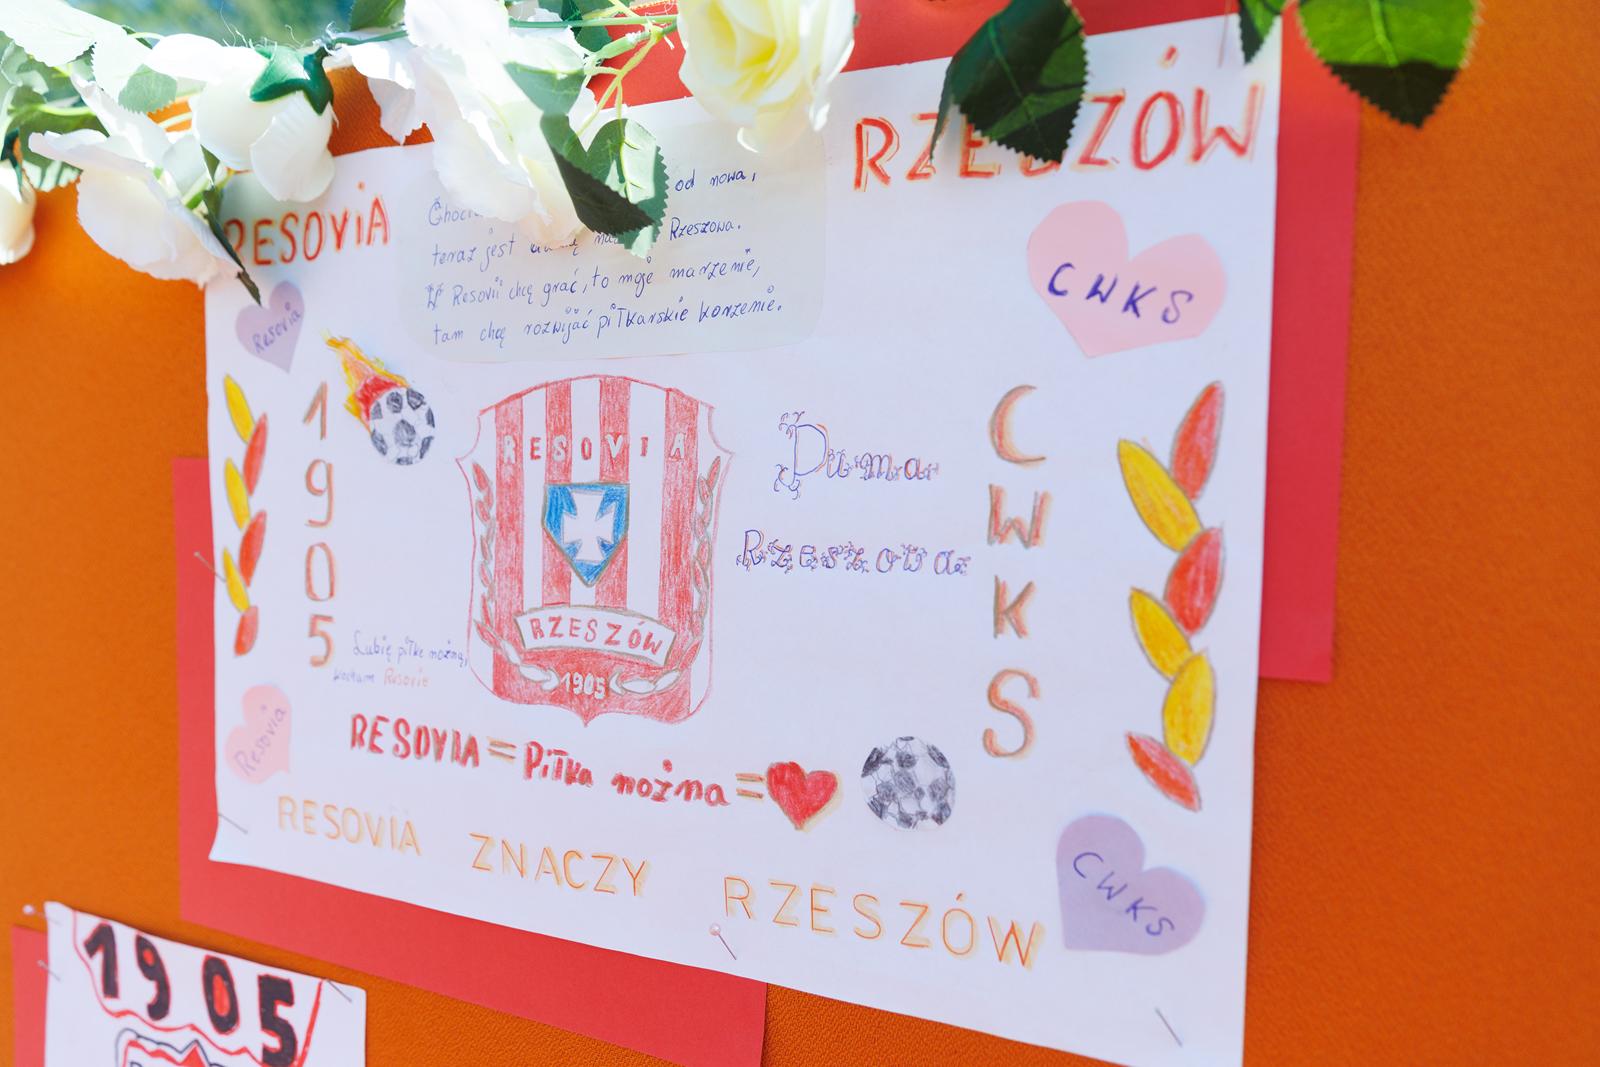 RESOVIA
RZESZÓW
od nowa,
teraz jest Rzeszowa.
W Resovii chcę grać, to moje marzenie,
tam chcę rozwijać piłkarskie korzenie.
CWKS
Resovia
1905
RESOVIA
RZESZÓW
1905
Duma
Rzeszowa
CWKS
Lubię piłkę nożną,
kocham Resovie
Resovia
RESOVIA = Piłka nożna =
RESOVIA ZNACZY RZESZÓW
CWKS
1905